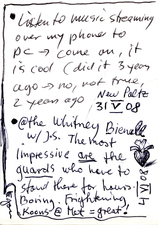 • Listen to music streaming
over my phone to
PC → come on, it
is cool (did it 3 years
ago → no, not true,
2 years ago) New Paltz
31 V 08
• @the Whitney Biennale
w/ J.S. The most
impressive are the
guards who have to
stand there for hours.
Boring. Frightening.
Koons @ Met = great!
4 VI 08